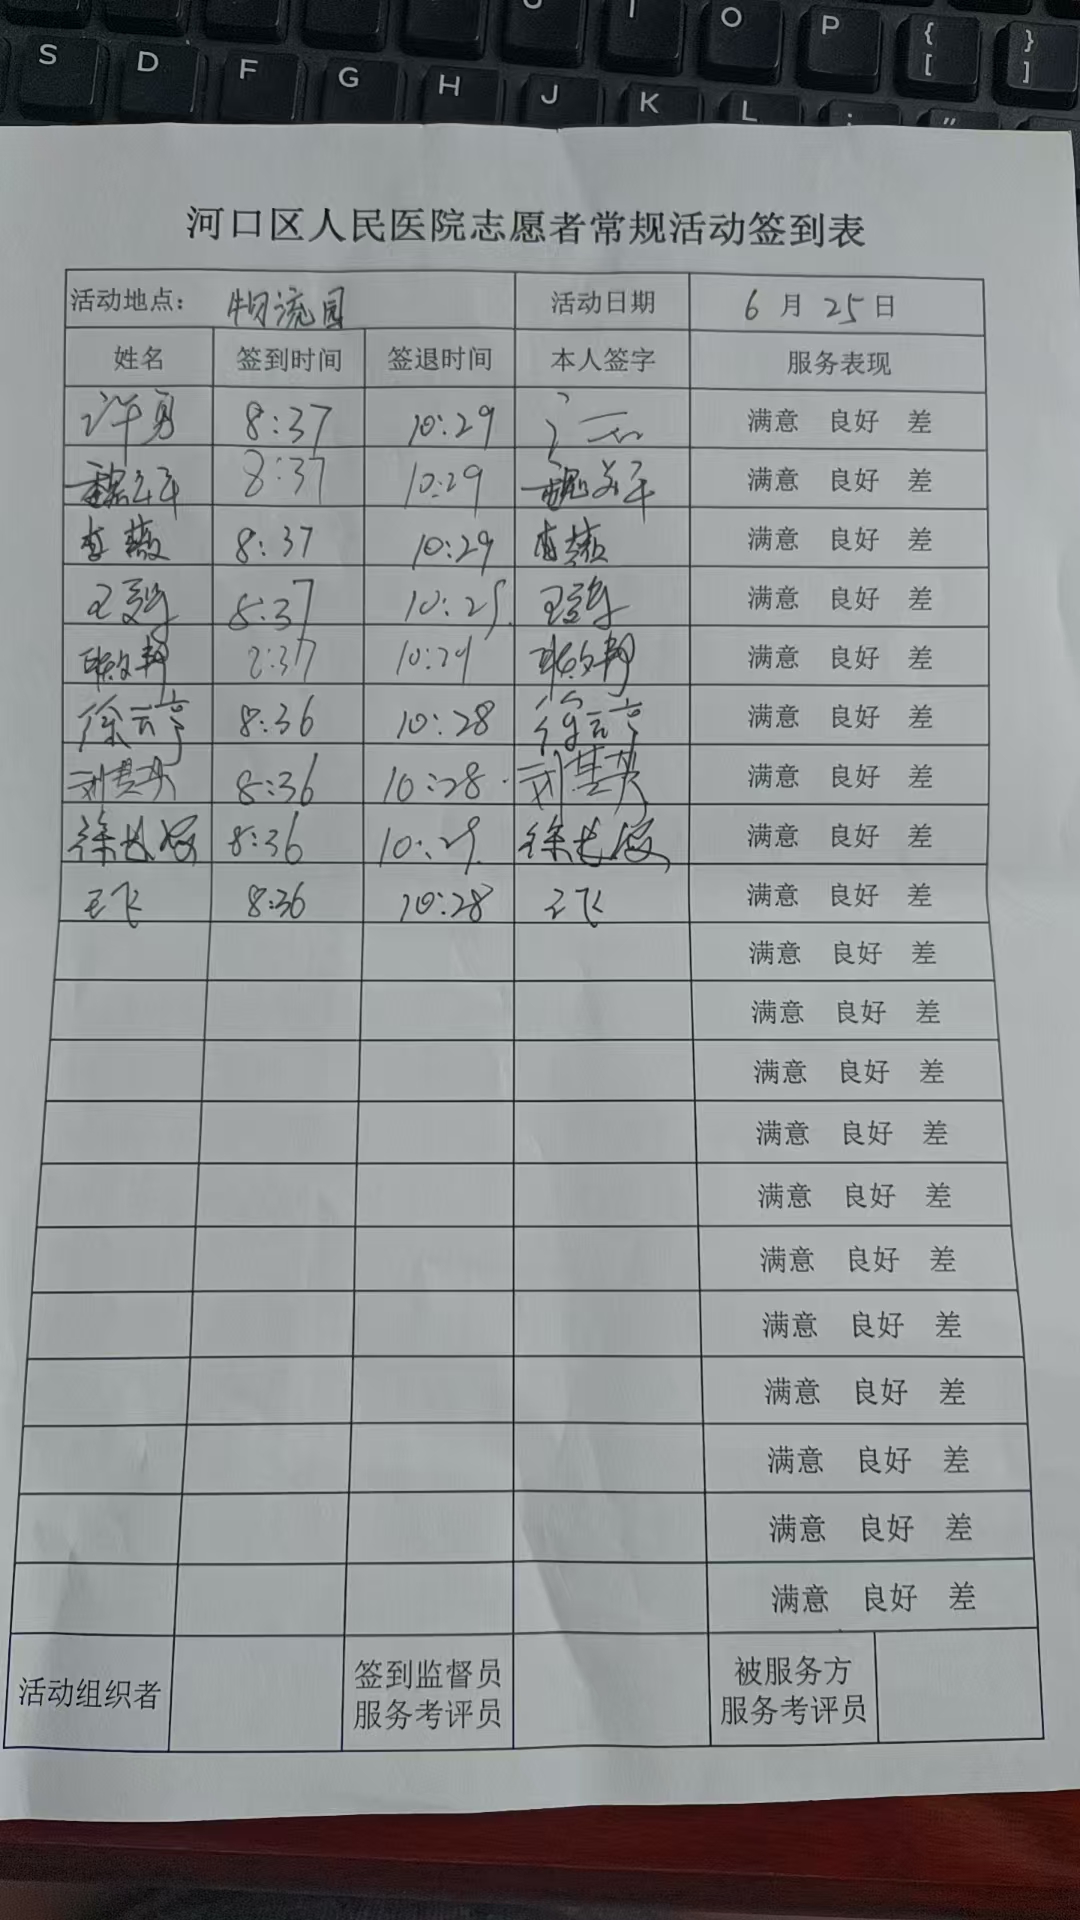 U I O P { [ } ]
S D F G H J K L ; "
河口区人民医院志愿者常规活动签到表
活动地点： 物流园 活动日期 6 月 25 日
姓名 签到时间 签退时间 本人签字 服务表现
许勇 8:37 10:29 满意 良好 差
8:37 10:29 满意 良好 差
李薇 8:37 10:29 李薇 满意 良好 差
8:37 10:29 满意 良好 差
8:37 10:29 满意 良好 差
徐云亭 8:36 10:28 徐云亭 满意 良好 差
8:36 10:28 满意 良好 差
8:36 10:29 满意 良好 差
王飞 8:36 10:28 王飞 满意 良好 差
满意 良好 差
满意 良好 差
满意 良好 差
满意 良好 差
满意 良好 差
满意 良好 差
满意 良好 差
满意 良好 差
满意 良好 差
满意 良好 差
满意 良好 差
活动组织者 签到监督员 被服务方
服务考评员 服务考评员